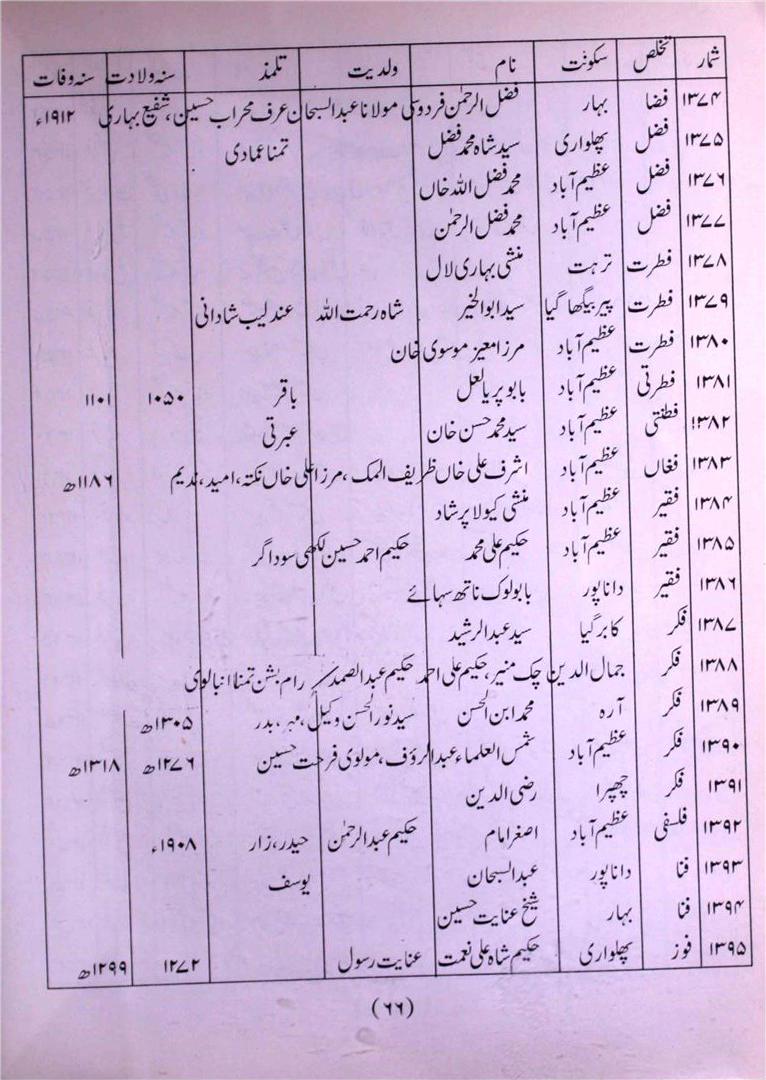 شمار تخلص سکونت نام ولدیت تلمذ سنہ ولادت سنہ وفات
۱۳۷۴ فضا بہار فضل الرحمٰن فردوسی مولانا عبدالسبحان عرف محراب حسین، شفیع بہاری ۱۹۱۲ء
۱۳۷۵ فضل پھلواری سید شاہ محمد فضل تمنا عمادی
۱۳۷۶ فضل عظیم آباد محمد فضل اللہ خاں
۱۳۷۷ فضل عظیم آباد محمد فضل الرحمٰن
۱۳۷۸ فطرت ترہت منشی بہاری لال
۱۳۷۹ فطرت پیر بیگھا گیا سید ابوالخیر شاہ رحمت اللہ عندلیب شادانی
۱۳۸۰ فطرت عظیم آباد مرزا معیز موسوی خان
۱۳۸۱ فطرتی عظیم آباد بابو پریا لعل باقر ۱۰۵۰ ۱۱۰۱
۱۳۸۲ فطنتی عظیم آباد سید محمد حسن خان عبرتی
۱۳۸۳ فغاں عظیم آباد اشرف علی خاں ظریف الملک، مرزا علی خاں نکتہ، امید، ندیم ۱۱۸۶ھ
۱۳۸۴ فقیر عظیم آباد منشی کیولا پرشاد
۱۳۸۵ فقیر عظیم آباد حکیم علی محمد حکیم احمد حسین لکھی سوداگر
۱۳۸۶ فقیر داناپور بابو لوک ناتھ سہائے
۱۳۸۷ فکر کابر گیا سید عبدالرشید
۱۳۸۸ فکر جمال الدین چک منیر، حکیم علی احمد حکیم عبدالصمد رام بشن تمنا انبالوی
۱۳۸۹ فکر آرہ محمد ابن الحسن سید نور الحسن وکیل، مہر، بدر ۱۳۰۵ھ
۱۳۹۰ فکر عظیم آباد شمس العلماء عبدالرؤف، مولوی فرحت حسین ۱۲۷۶ھ ۱۳۱۸ھ
۱۳۹۱ فکر چھپرا رضی الدین
۱۳۹۲ فلسفی عظیم آباد اصغر امام حکیم عبدالرحمٰن حیدر، زار ۱۹۰۸ء
۱۳۹۳ فنا داناپور عبدالسبحان یوسف
۱۳۹۴ فنا بہار شیخ عنایت حسین
۱۳۹۵ فوز پھلواری حکیم شاہ علی نعمت عنایت رسول ۱۲۷۲ ۱۲۹۹ھ
(۶۶)